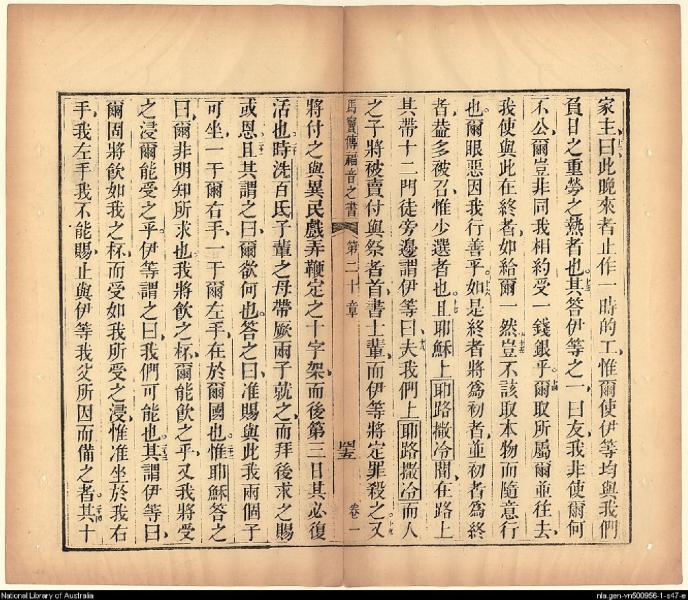 家主曰此晚來者止作一時的工惟爾使伊等均與我們
負日之重勞之熱者也其答伊等之一曰友我非使爾何
不公爾豈非同我相約受一錢銀乎爾取所屬爾並往去
我使與此在終者如給爾一然豈不該取本物而隨意行
也爾眼惡因我行善乎如是終者將為初者並初者為終
者葢多被召惟少選者也且耶穌上耶路撒冷間在路上
其帶十二門徒旁邊謂伊等曰夫我們上耶路撒冷而人
之子將被賣付與祭者首書士輩而伊等將定罪殺之又
馬竇傳福音之書 第二十章 卷一
將付之與異民戲弄鞭定之十字架而後第三日其必復
活也時洗百氐子輩之母帶厥兩子就之而拜後求之賜
或恩且其謂之曰爾欲何也答之曰准賜與此我兩個子
可坐一于爾右手一于爾左手在於爾國也惟耶穌答之
曰爾非明知所求也我將飲之杯爾能飲之乎又我將受
之浸爾能受之乎伊等謂之曰我們可能也其謂伊等曰
爾固將飲如我之杯而受如我所受之浸惟准坐於我右
手我左手我不能賜止與伊等我父所因而備之者其十
National Library of Australia
nla.gen-vn500956-1-s47-e